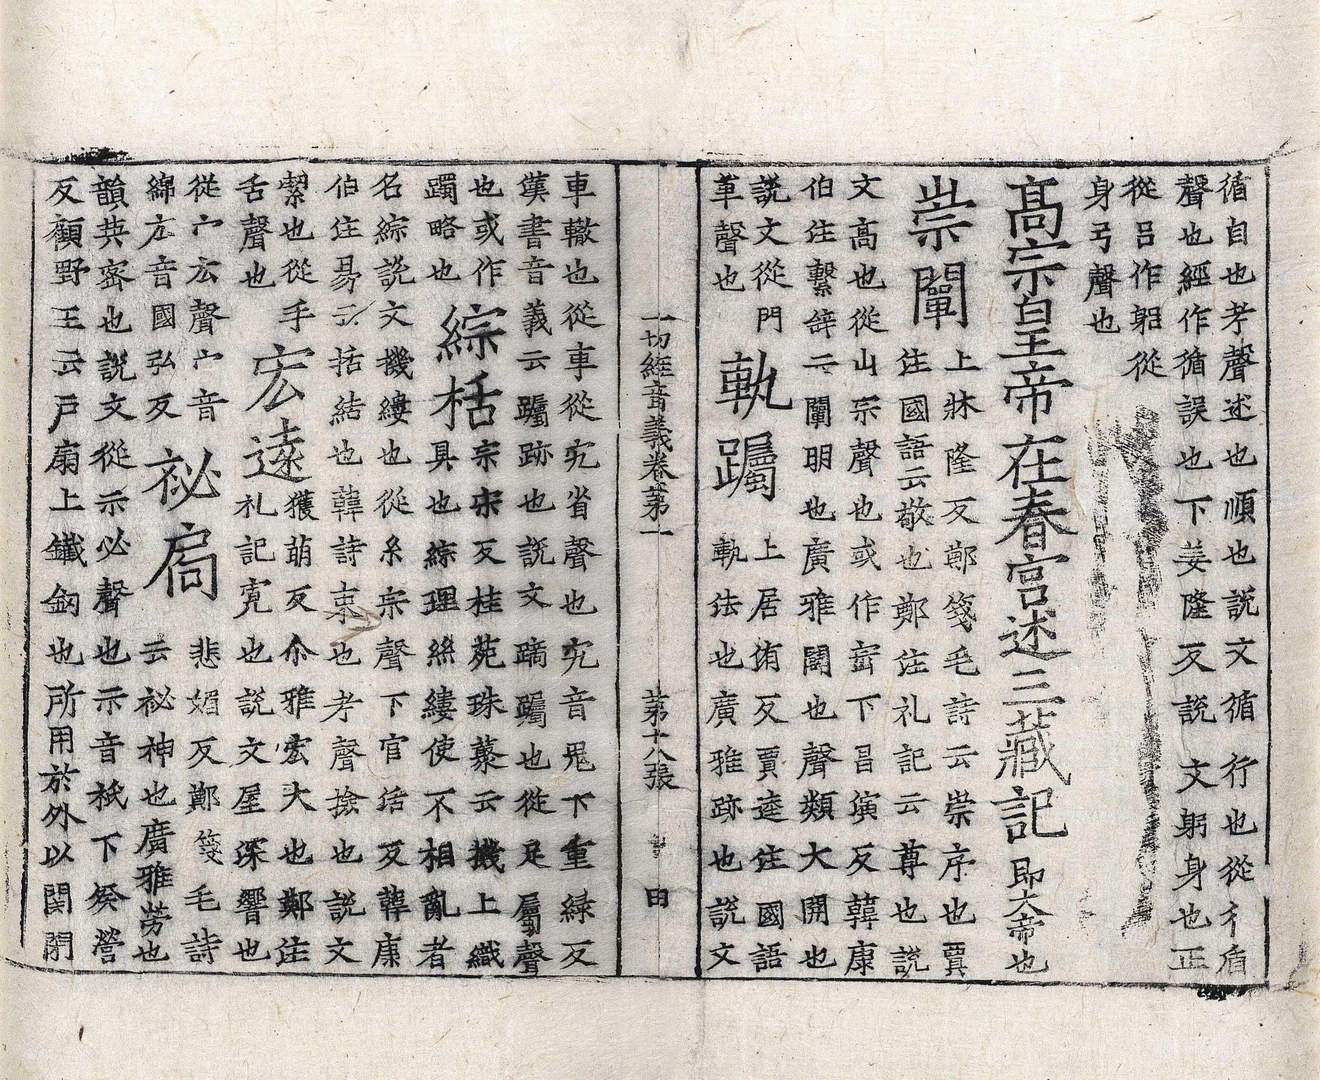 循自也考聲述也順也說文循行也從彳盾
聲也經作循誤也下姜隆反說文躬身也正
從呂作躳從
身弓聲也
高宗皇帝在春宮述三藏記
即大帝也
崇闡
上牀隆反鄭箋毛詩云崇序也賈
注國語云敬也鄭注礼記云尊也說
文高也從山宗聲也或作崈下昌演反韓康
伯注繫辭云闡明也廣雅闢也聲類大開也
說文從門
單聲也
軌躅
上居洧反賈逵注國語
軌法也廣雅跡也說文
一切經音義卷第一 第十八張 田
車轍也從車從宄省聲也宄音鬼下重綠反
漢書音義云躅跡也說文蹢躅也從足屬聲
也或作
躅略也
綜栝
宗宋反桂苑珠藂云機上織
具也綜理絲縷使不相亂者
名綜說文機縷也從糸宗聲下官活反韓康
伯注易云括結也韓詩束也考聲撿也說文
絜也從手
舌聲也
宏遠
獲萌反尒雅宏大也鄭注
礼記寬也說文屋深響也
從宀厷聲宀音
綿厷音國弘反
祕扃
悲媚反鄭箋毛詩
云祕神也廣雅勞也
韻英密也說文從示必聲也示音祇下癸營
反顧野王云戶扇上鐵鈎也所用於外以閞閇